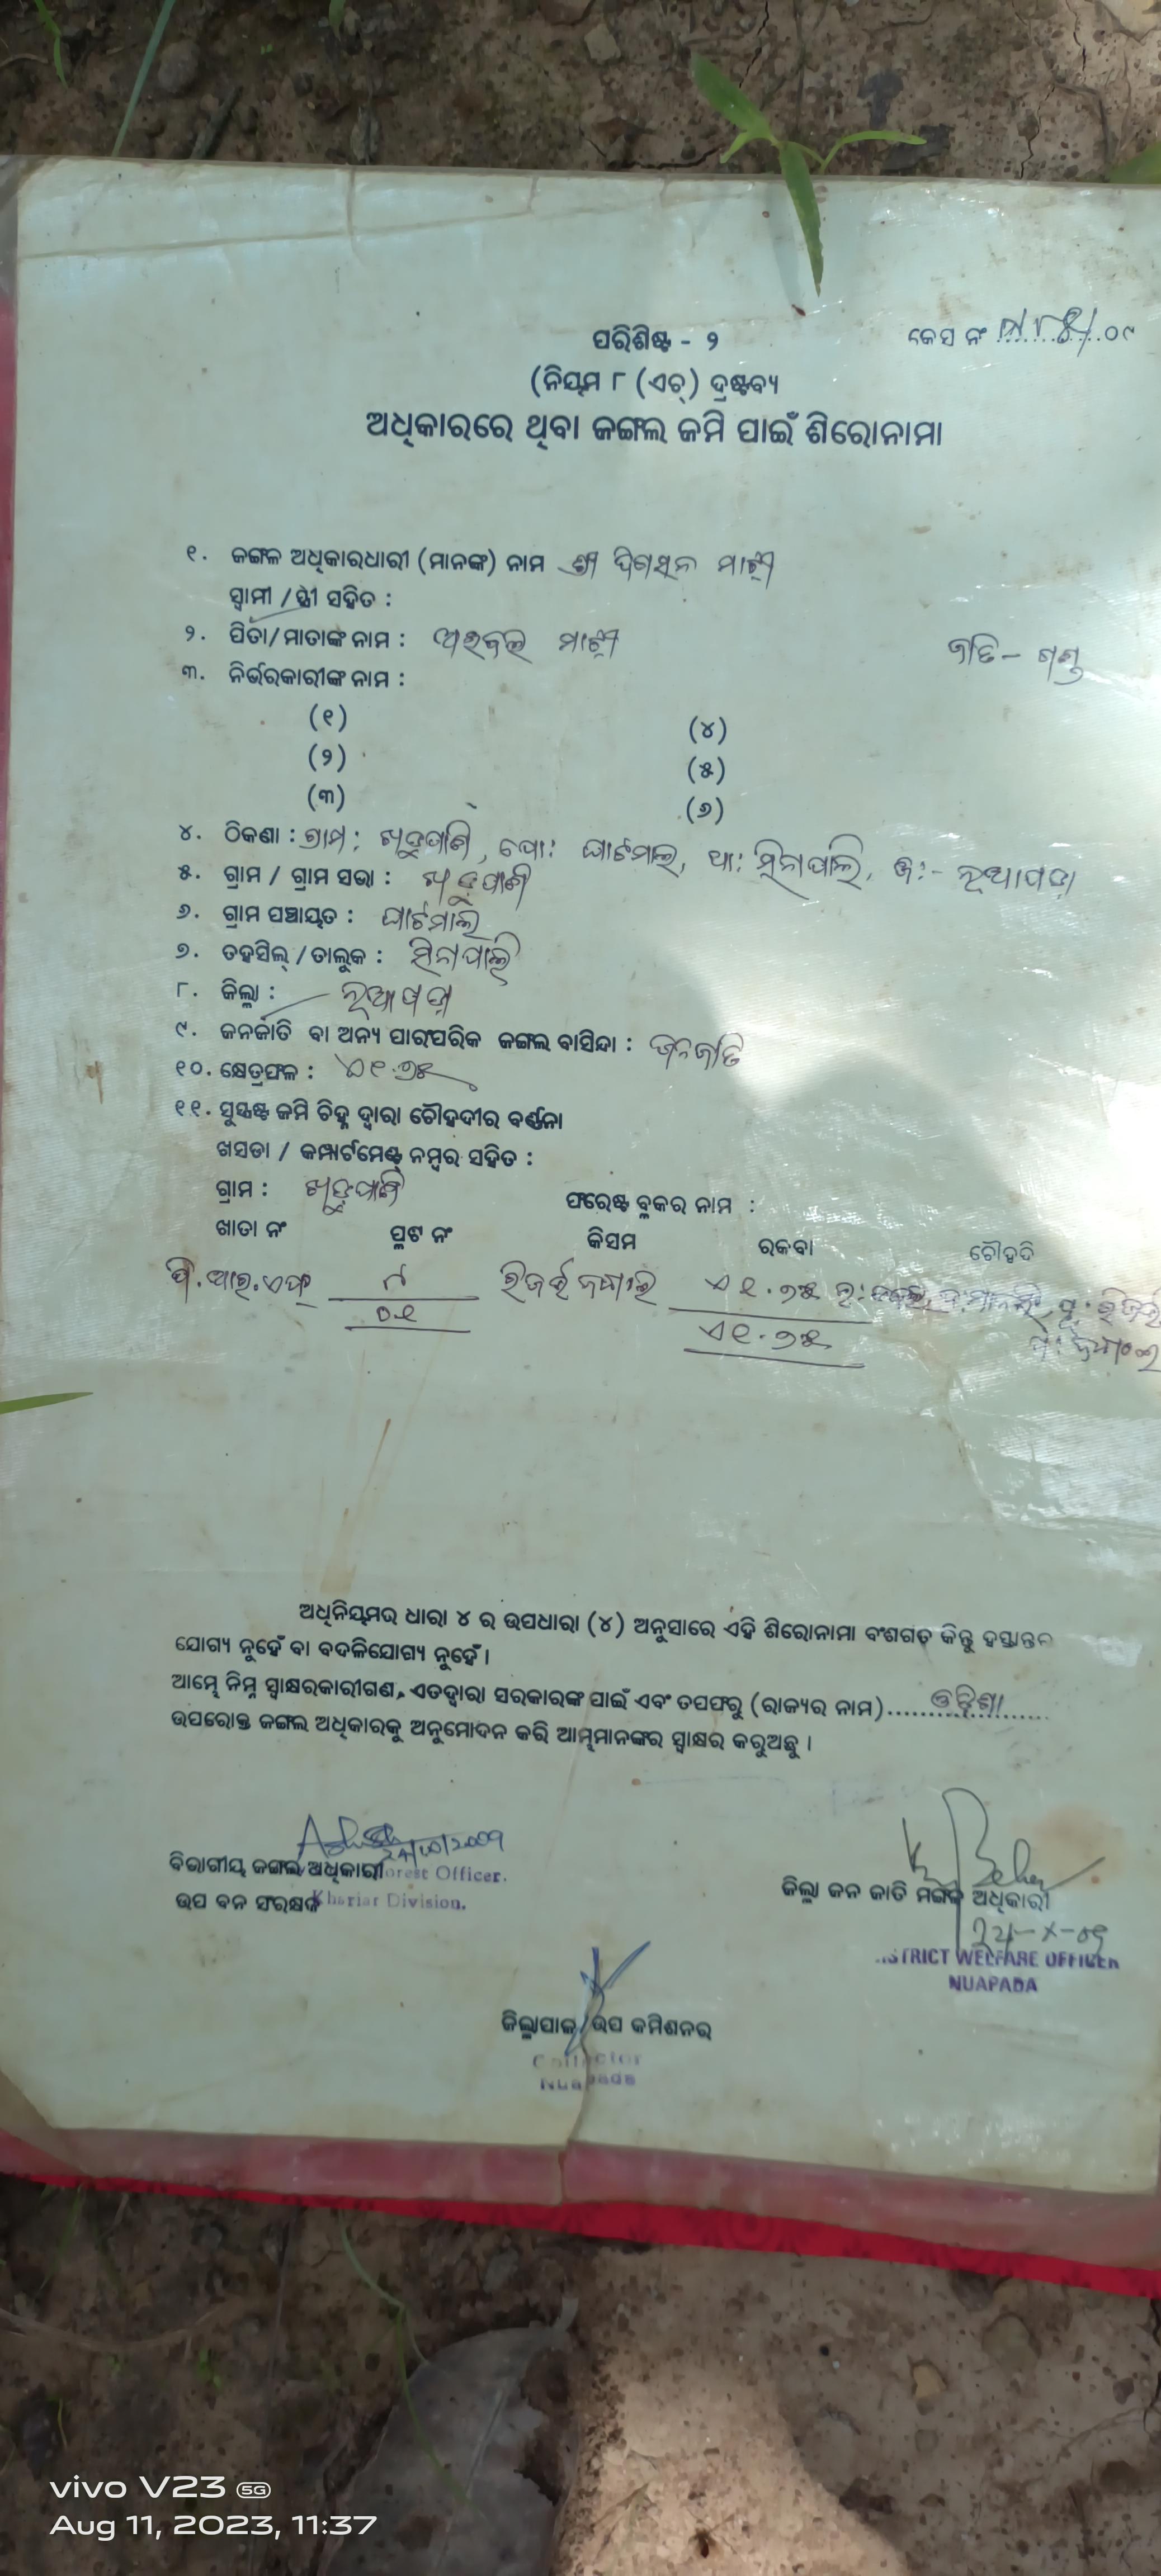 ପରିଶିଷ୍ଟ - ୨
କେସ ନଂ ୦୯
(ନିୟମ ୮ (ଏଚ୍) ଦ୍ରଷ୍ଟବ୍ୟ
ଅଧିକାରରେ ଥିବା ଜଙ୍ଗଲ ଜମି ପାଇଁ ଶିରୋନାମା
୧. ଜଙ୍ଗଲ ଅଧିକାରଧାରୀ (ମାନଙ୍କ) ନାମ ଶ୍ରୀ ମାଝୀ
ସ୍ଵାମୀ / ସ୍ତ୍ରୀ ସହିତ :
୨. ପିତା/ମାତାଙ୍କ ନାମ : ମାଝୀ ଜାତି - ଗଣ୍ଡ
୩. ନିର୍ଭରକାରୀଙ୍କ ନାମ :
(୧) (୪)
(୨) (୫)
(୩) (୬)
୪. ଠିକଣା : ଗ୍ରାମ: ପୋ: ଘାଟମାଲ, ଥା: ସିନାପାଲି, ଜି:- ନୂଆପଡ଼ା
୫. ଗ୍ରାମ / ଗ୍ରାମ ସଭା :
୬. ଗ୍ରାମ ପଞ୍ଚାୟତ : ଘାଟମାଲ
୭. ତହସିଲ୍ / ତାଲୁକ : ସିନାପାଲି
୮. ଜିଲ୍ଲା : ନୂଆପଡ଼ା
୯. ଜନଜାତି ବା ଅନ୍ୟ ପାରଂପରିକ ଜଙ୍ଗଲ ବାସିନ୍ଦା : ଜନଜାତି
୧୦. କ୍ଷେତ୍ରଫଳ : ଏ୧.୭୫
୧୧. ସୁସ୍ପଷ୍ଟ ଜମି ଚିହ୍ନ ଦ୍ଵାରା ଚୌହଦୀର ବର୍ଣ୍ଣନା
ଖସଡା / କମ୍ପାର୍ଟମେଣ୍ଟ ନମ୍ବର ସହିତ :
ଗ୍ରାମ : ଫରେଷ୍ଟ ବ୍ଲକର ନାମ :
ଖାତା ନଂ ପ୍ଲଟ ନଂ କିସମ ରକବା ଚୌହଦି
ପି.ଆର.ଏଫ୍ ରିଜର୍ଭ ଏ ୧.୭୫
୦୧ ଏ ୧.୭୫
ଅଧିନିୟମର ଧାରା ୪ ର ଉପଧାରା (୪) ଅନୁସାରେ ଏହି ଶିରୋନାମା ବଂଶଗତ କିନ୍ତୁ ହସ୍ତାନ୍ତର
ଯୋଗ୍ୟ ନୁହେଁ ବା ବଦଳିଯୋଗ୍ୟ ନୁହେଁ ।
ଆମ୍ଭେ ନିମ୍ନ ସ୍ୱାକ୍ଷରକାରୀଗଣ, ଏତଦ୍ଵାରା ସରକାରଙ୍କ ପାଇଁ ଏବଂ ତପଫରୁ (ରାଜ୍ୟର ନାମ)..... ଓଡ଼ିଶା .....
ଉପରୋକ୍ତ ଜଙ୍ଗଲ ଅଧିକାରକୁ ଅନୁମୋଦନ କରି ଆମ୍ଭମାନଙ୍କର ସ୍ୱାକ୍ଷର କରୁଅଛୁ ।
24/10/2009
ବିଭାଗୀୟ ଜଙ୍ଗଲ ଅଧିକାରୀ Forest Officer.
ଉପ ବନ ସଂରକ୍ଷକ Khariar Division.
ଜିଲ୍ଲା ଜନ ଜାତି ମଙ୍ଗଳ ଅଧିକାରୀ
DISTRICT WELFARE OFFICER
NUAPADA
ଜିଲ୍ଲାପାଳ/ଉପ କମିଶନର
Collector
Nuapada
vivo V23 5G
Aug 11, 2023, 11:37